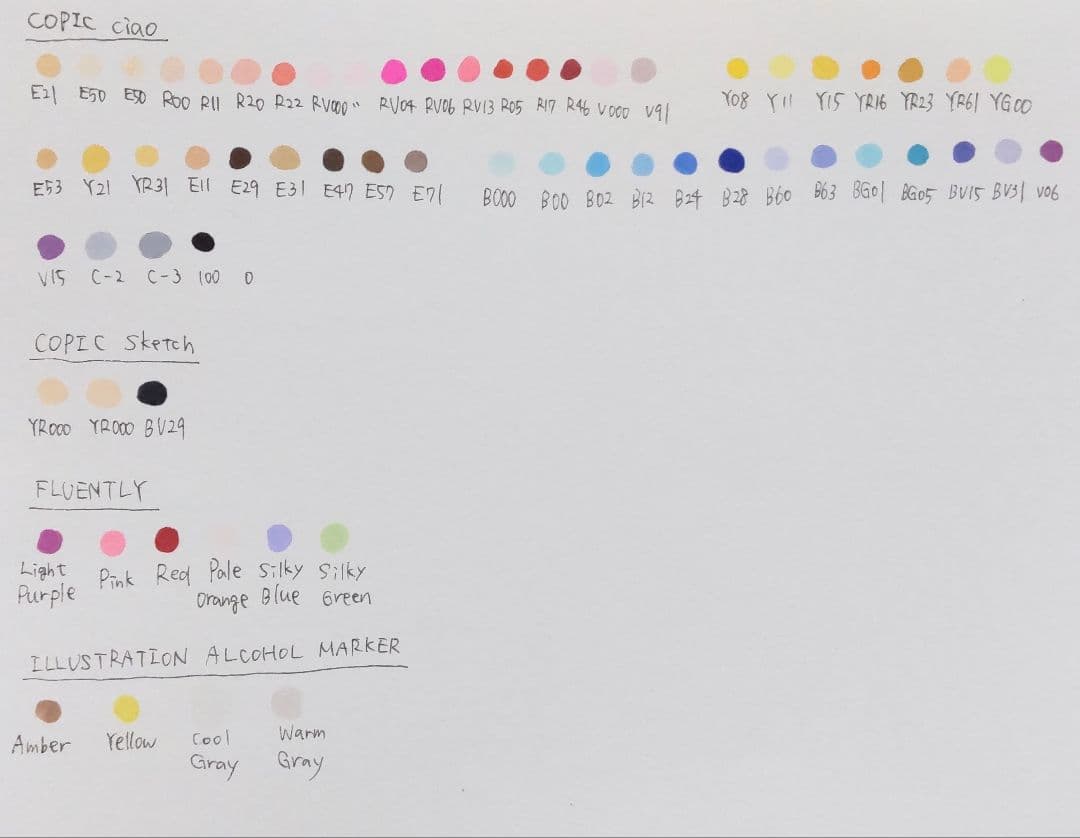 COPIC ciao
E21 E50 E50 R00 R11 R20 R22 RV000 〃 RV04 RV06 RV13 R05 R17 R46 V000 V91 Y08 Y11 Y15 YR16 YR23 YR61 YG00
E53 Y21 YR31 E11 E29 E31 E47 E57 E71 B000 B00 B02 B12 B24 B28 B60 B63 BG01 BG05 BV15 BV31 V06
V15 C-2 C-3 100 0
COPIC Sketch
YR000 YR000 BV29
FLUENTLY
Light Purple Pink Red Pale Orange Silky Blue Silky Green
ILLUSTRATION ALCOHOL MARKER
Amber Yellow Cool Gray Warm Gray